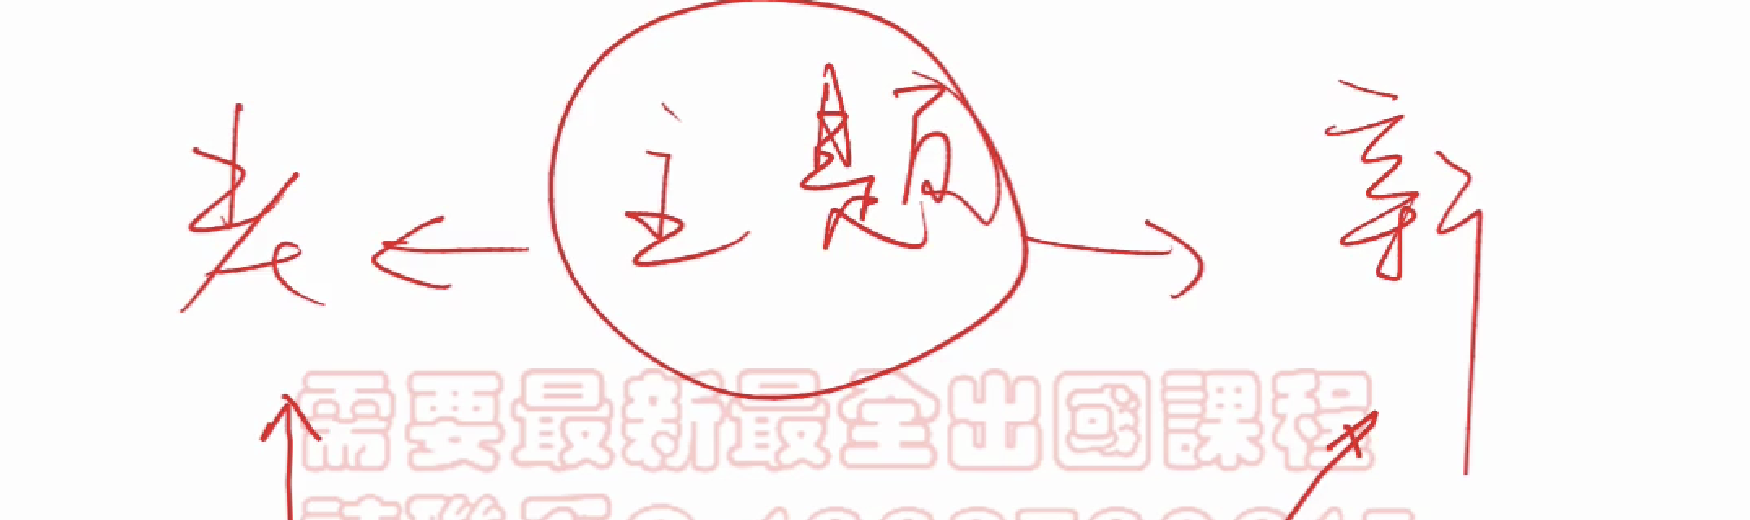 老 ← 主题 → 新
需要最新最全出國課程